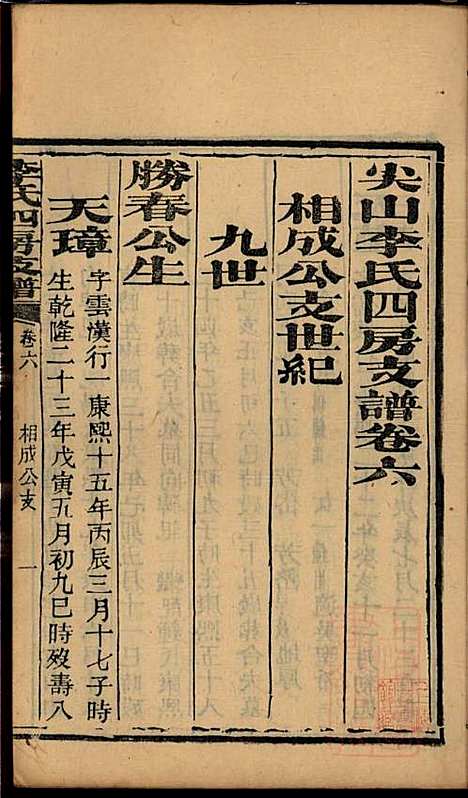 尖山李氏四房支譜卷六
相成公支世紀
九世
勝春公生
天璋
字雲漢行一康熙十五年丙辰三月十七子時
生乾隆二十三年戊寅五月初九巳時歿壽八
李氏四房支譜
卷六
相成公支
一